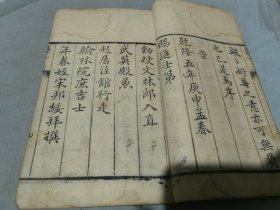 好善之意亦可無
也已是為序
旹
乾隆五年庚申孟春
賜進士第
勅授文林郎入直
武英殿兼
起居注館行走
翰林院庶吉士
年眷姪宋邦綏拜撰